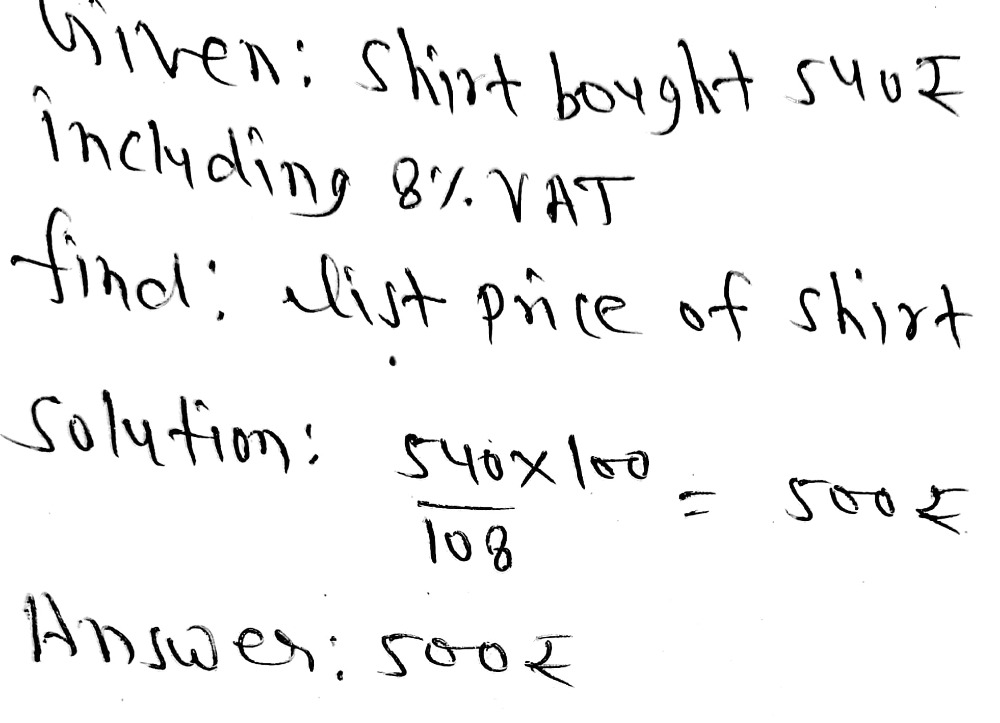 Given: Shirt bought 540₹
including 8% VAT
find: list price of shirt
Solution: 540×100
/108 = 500₹
Answer: 500₹